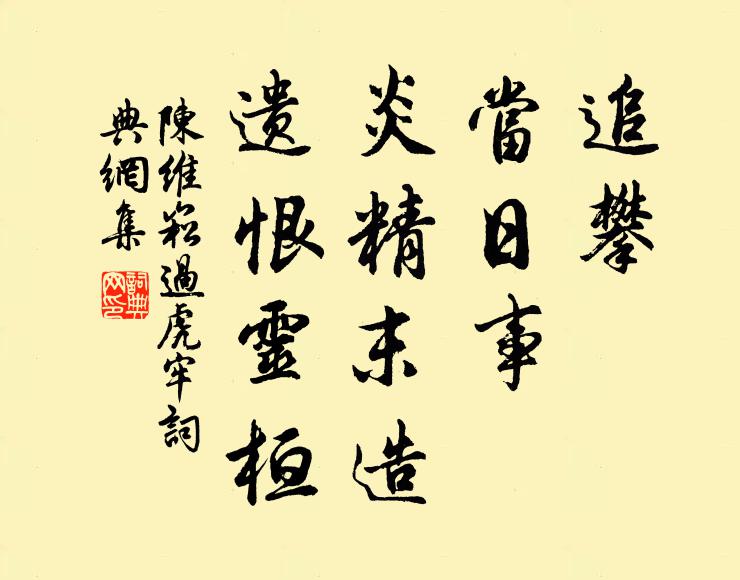 追攀
當日事
炎精末造
遺恨靈桓
陳維崧過虎牢詞
典網集
詞典網印